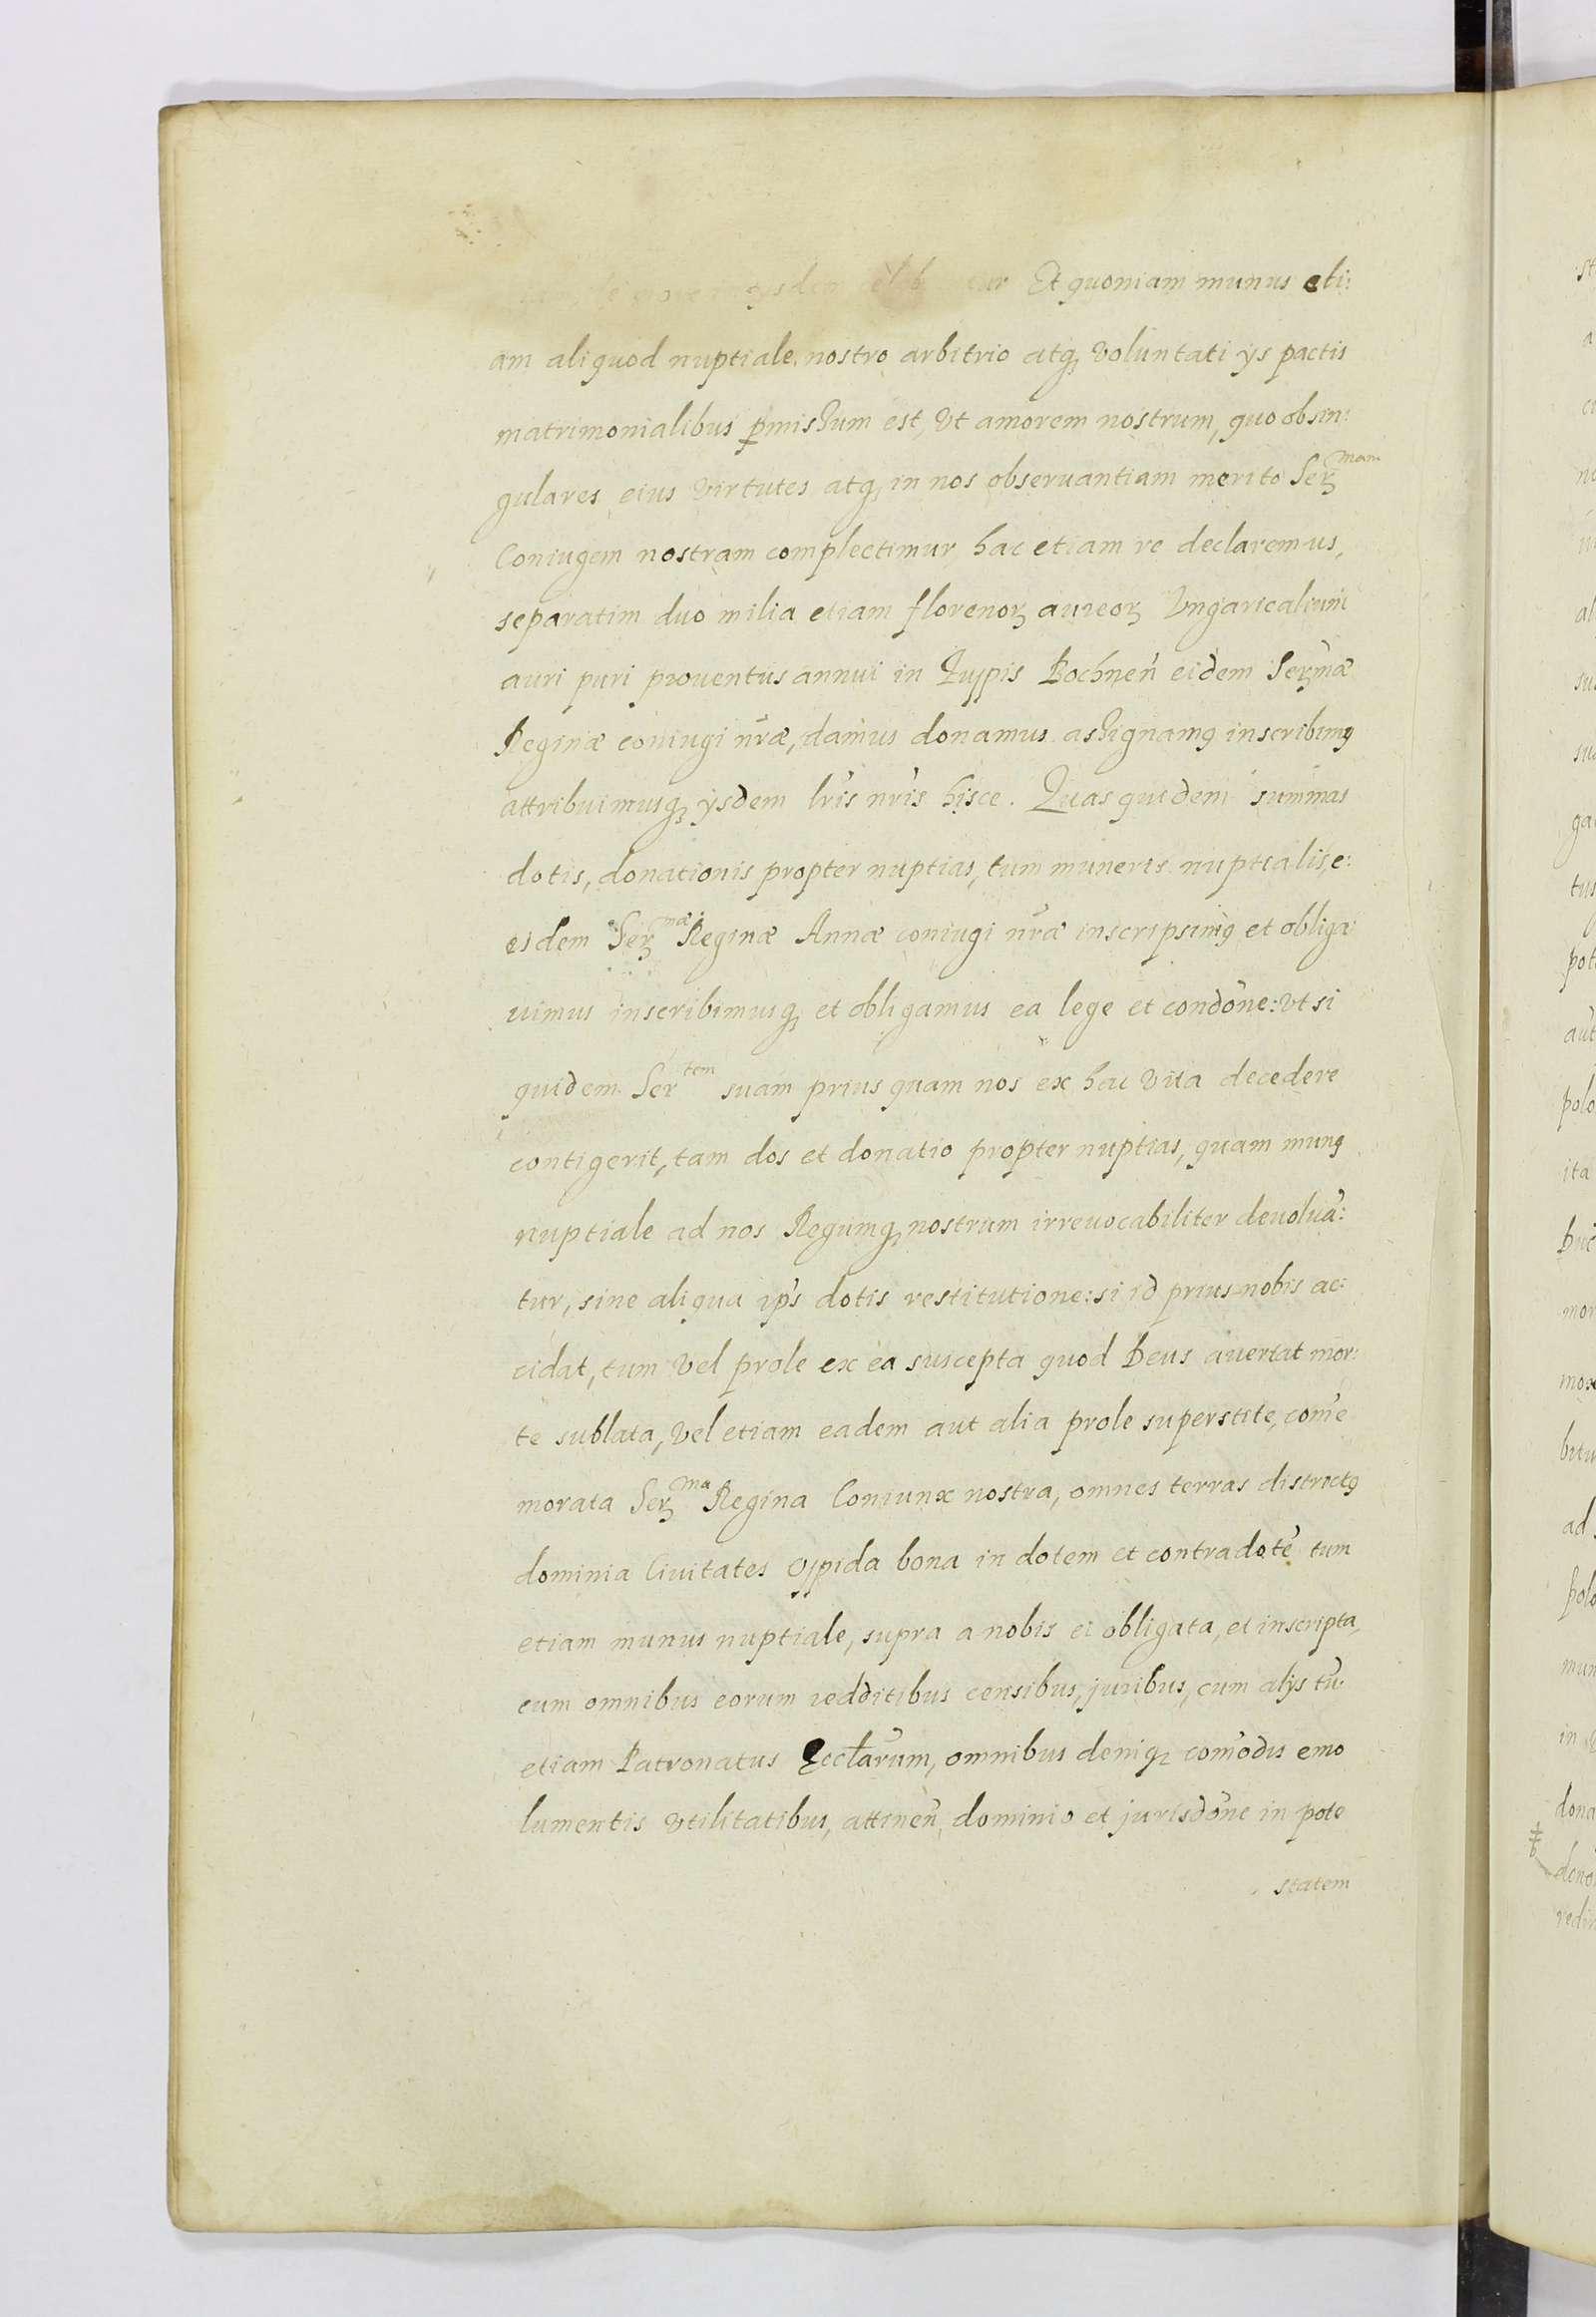 ysdem Et quoniam munus eti:
am aliquod nuptiale, nostro arbitrio atq; voluntati ys pactis
matrimonialibus p̱missum est, vt amorem nostrum, quo ob sin:
gulares eius virtutes atq; in nos obseruantiam merito Serᵐᵃᵐ
Coniugem nostram complectimur hac etiam re declaremus,
separatim duo milia etiam florenoꝝ aureoꝝ Vngaricalium
auri puri prouentus annui in Zuppis Bochneñ eidem Serm̃æ
Reginæ coniugi nr̃æ, damus donamus assignamꝰ inscribimꝰ
attribuimusq; ysdem lr̃is nr̃is hisce. Quas quidem summas
dotis, donationis propter nuptias, tum muneris nuptialis, e:
eidem Serᵐæ Reginæ Annæ coniugi nr̃æ inscripsimꝰ et obliga:
uimus inscribimusq; et obligamus ea lege et condõne: vt si
quidem Serᵗᵉᵐ suam prius quam nos ex hac vita decedere
contigerit, tam dos et donatio propter nuptias, quam munꝰ
nuptiale ad nos Regumq; nostrum irreuocabiliter deuoluã:
tur, sine aliqua ip̃s dotis restitutione: si id prius nobis ac:
cidat, tum vel prole ex ea suscepta quod Deus auertat mor:
te sublata, vel etiam eadem aut alia prole superstite, com̃e
morata Serᵐᵃ Regina Coniunx nostra, omnes terras districtꝰ
dominia Ciuitates Oppida bona in dotem et contradotẽ tum
etiam munus nuptiale, supra a nobis ei obligata, et inscripta,
cum omnibus eorum redditibus censibus, juribus, cum alys tũ
etiam Patronatus Ecclãrum, omnibus deniq; com̃odis emo
lumentis vtilitatibus, attineñ, dominio et jurisdõne in pote
statem